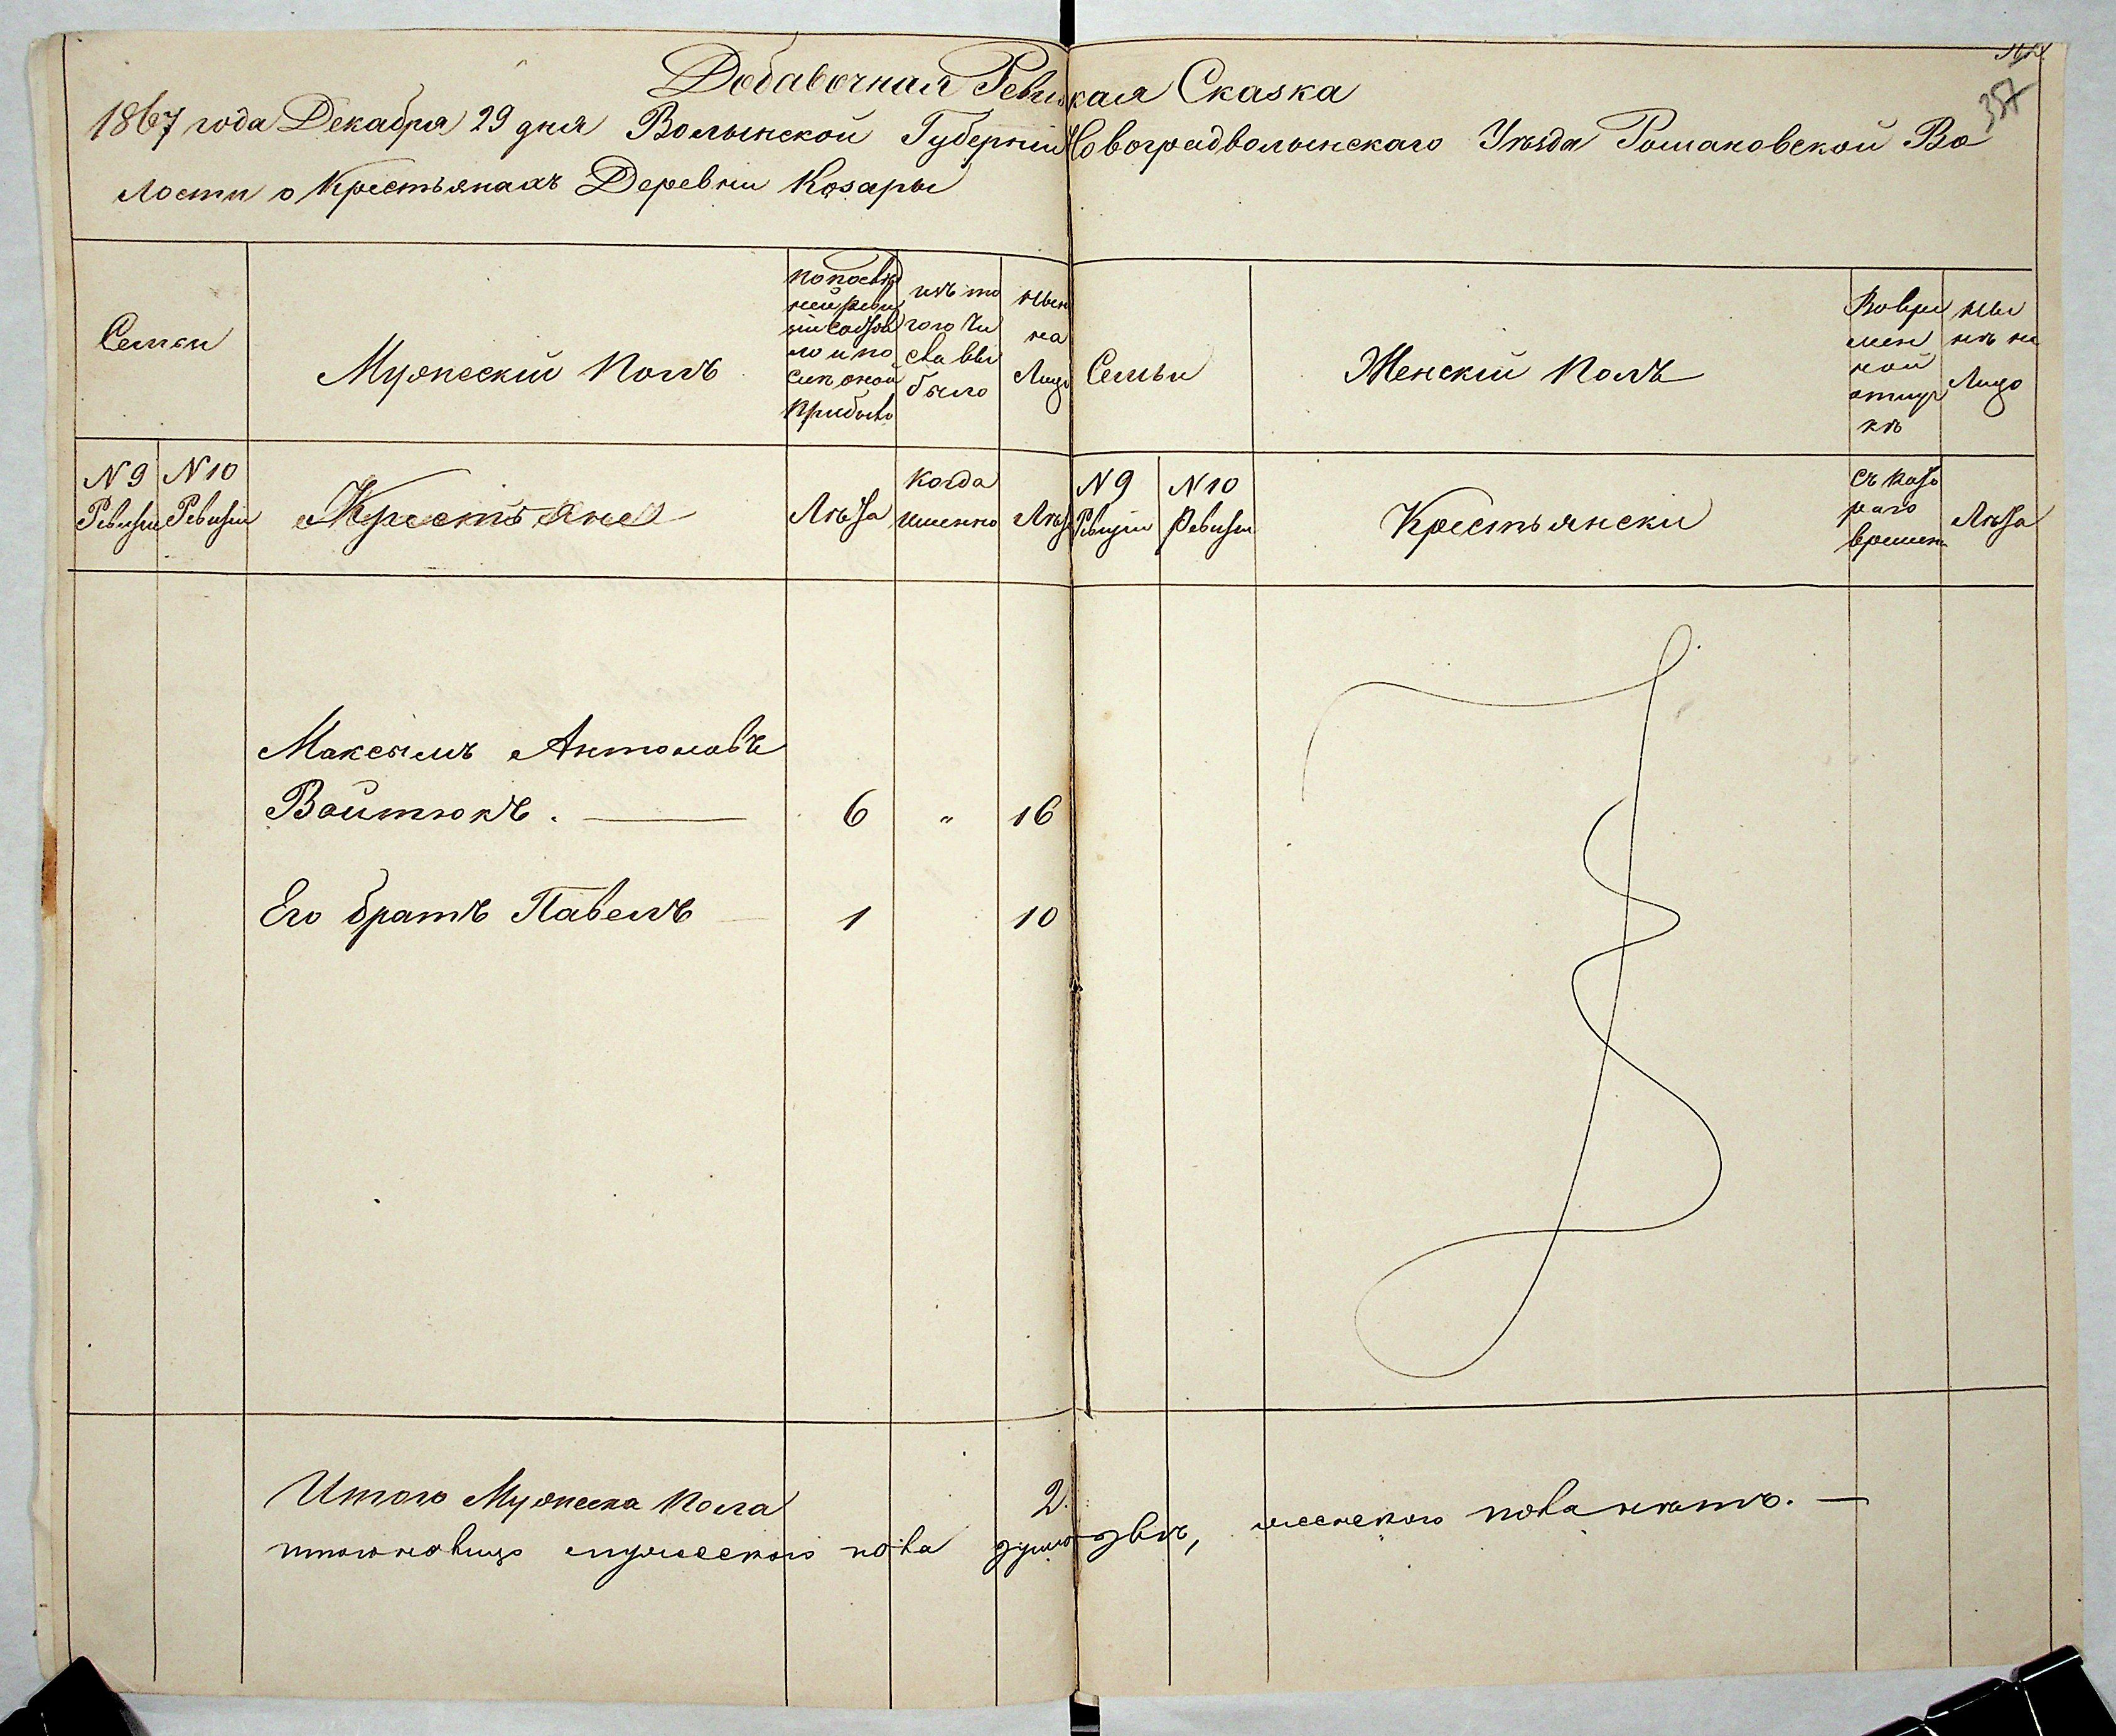 Добавочная Ревизкая Сказка
357
1867 года Декабря 29 дня Волынской Губерніи Новоградволынскаго Уѣзда Романовской Во
лости о Крестьянахъ Деревни Козары
Семьи
Мужескій Полъ
по послѣд
ней реви
зіи состоя
ло и по
слѣ оной
прибыло
изъ то
гого Чи
сла вы
было
нын
на
Лицо
Семьи
Женскій Полъ
Вовре
мен
ной
отлуч
кѣ
ны
нѣ на
Лицо
N 9
Ревизіи
N 10
Ревизіи
Крестьяне
Лѣта
Когда
именно
Лѣта
N 9
Ревизіи
N 10
Ревизіи
Крестьянски
Съ кото
раго
времен
Лѣта
Максымъ Антоновъ
Войтюкъ. — 6 " 16
Его братъ Павелъ — 1 10
Итого Мужеска Пола 2.
мужескаго пола душъ двѣ, женскаго пола нѣтъ. —